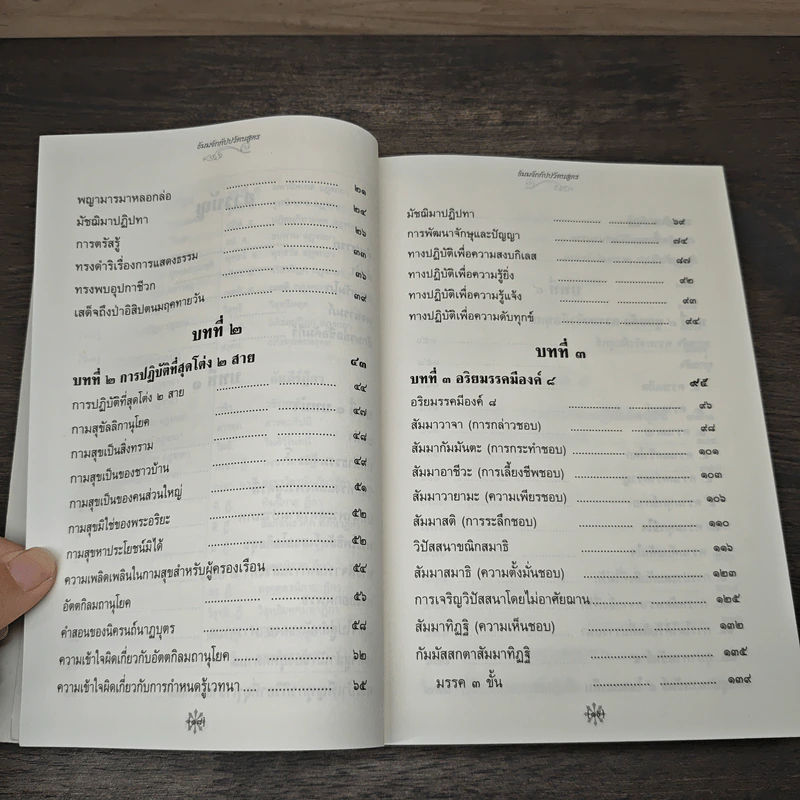 ธัมมจักกัปปวัตนสูตร
พญามารมาหลอกล่อ ๒๑
มัชฌิมาปฏิปทา ๒๔
การตรัสรู้ ๒๖
ทรงดำริเรื่องการแสดงธรรม ๓๓
ทรงพบอุปกาชีวก ๓๖
เสด็จถึงป่าอิสิปตนมฤคทายวัน ๓๙
บทที่ ๒
บทที่ ๒ การปฏิบัติที่สุดโต่ง ๒ สาย ๔๓
การปฏิบัติที่สุดโต่ง ๒ สาย ๔๔
กามสุขัลลิกานุโยค ๔๗
กามสุขเป็นสิ่งทราม ๔๘
กามสุขเป็นของชาวบ้าน ๔๙
กามสุขเป็นของคนส่วนใหญ่ ๕๑
กามสุขมิใช่ของพระอริยะ ๕๒
กามสุขหาประโยชน์มิได้ ๕๒
ความเพลิดเพลินในกามสุขสำหรับผู้ครองเรือน ๕๔
อัตตกิลมถานุโยค ๕๖
คำสอนของนิครนถ์นาฏบุตร ๕๘
ความเข้าใจผิดเกี่ยวกับอัตตกิลมถานุโยค ๖๒
ความเข้าใจผิดเกี่ยวกับการกำหนดรู้เวทนา ๖๕
ธัมมจักกัปปวัตนสูตร
มัชฌิมาปฏิปทา ๖๙
การพัฒนาจักษุและปัญญา ๗๔
ทางปฏิบัติเพื่อความสงบกิเลส ๘๗
ทางปฏิบัติเพื่อความรู้ยิ่ง ๙๒
ทางปฏิบัติเพื่อความรู้แจ้ง ๙๓
ทางปฏิบัติเพื่อความดับทุกข์ ๙๔
บทที่ ๓
บทที่ ๓ อริยมรรคมีองค์ ๘ ๙๕
อริยมรรคมีองค์ ๘ ๙๖
สัมมาวาจา (การกล่าวชอบ) ๙๘
สัมมากัมมันตะ (การกระทำชอบ) ๑๐๑
สัมมาอาชีวะ (การเลี้ยงชีพชอบ) ๑๐๓
สัมมาวายามะ (ความเพียรชอบ) ๑๐๖
สัมมาสติ (การระลึกชอบ) ๑๑๐
วิปัสสนาขณิกสมาธิ ๑๑๖
สัมมาสมาธิ (ความตั้งมั่นชอบ) ๑๒๓
การเจริญวิปัสสนาโดยไม่อาศัยฌาน ๑๒๕
สัมมาทิฏฐิ (ความเห็นชอบ) ๑๓๒
กัมมัสสกตาสัมมาทิฏฐิ ๑๓๕
มรรค ๓ ขั้น ๑๓๙